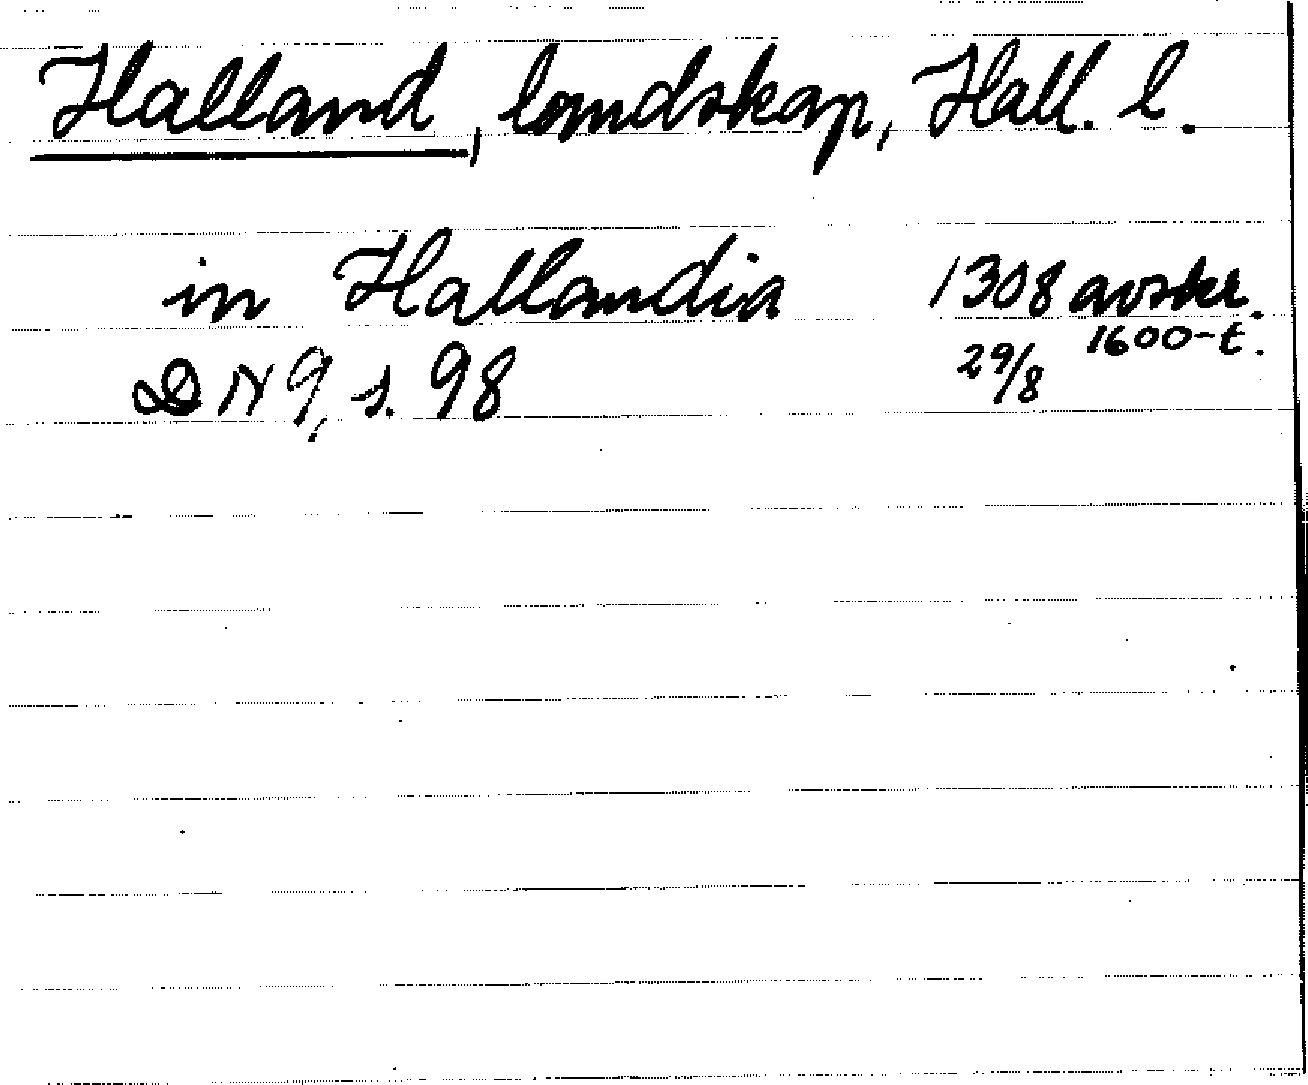 Halland, landskap, Hall. l.
in Hallandia 1308 avskr. 1600-t.
DN 9, s. 98 29/8